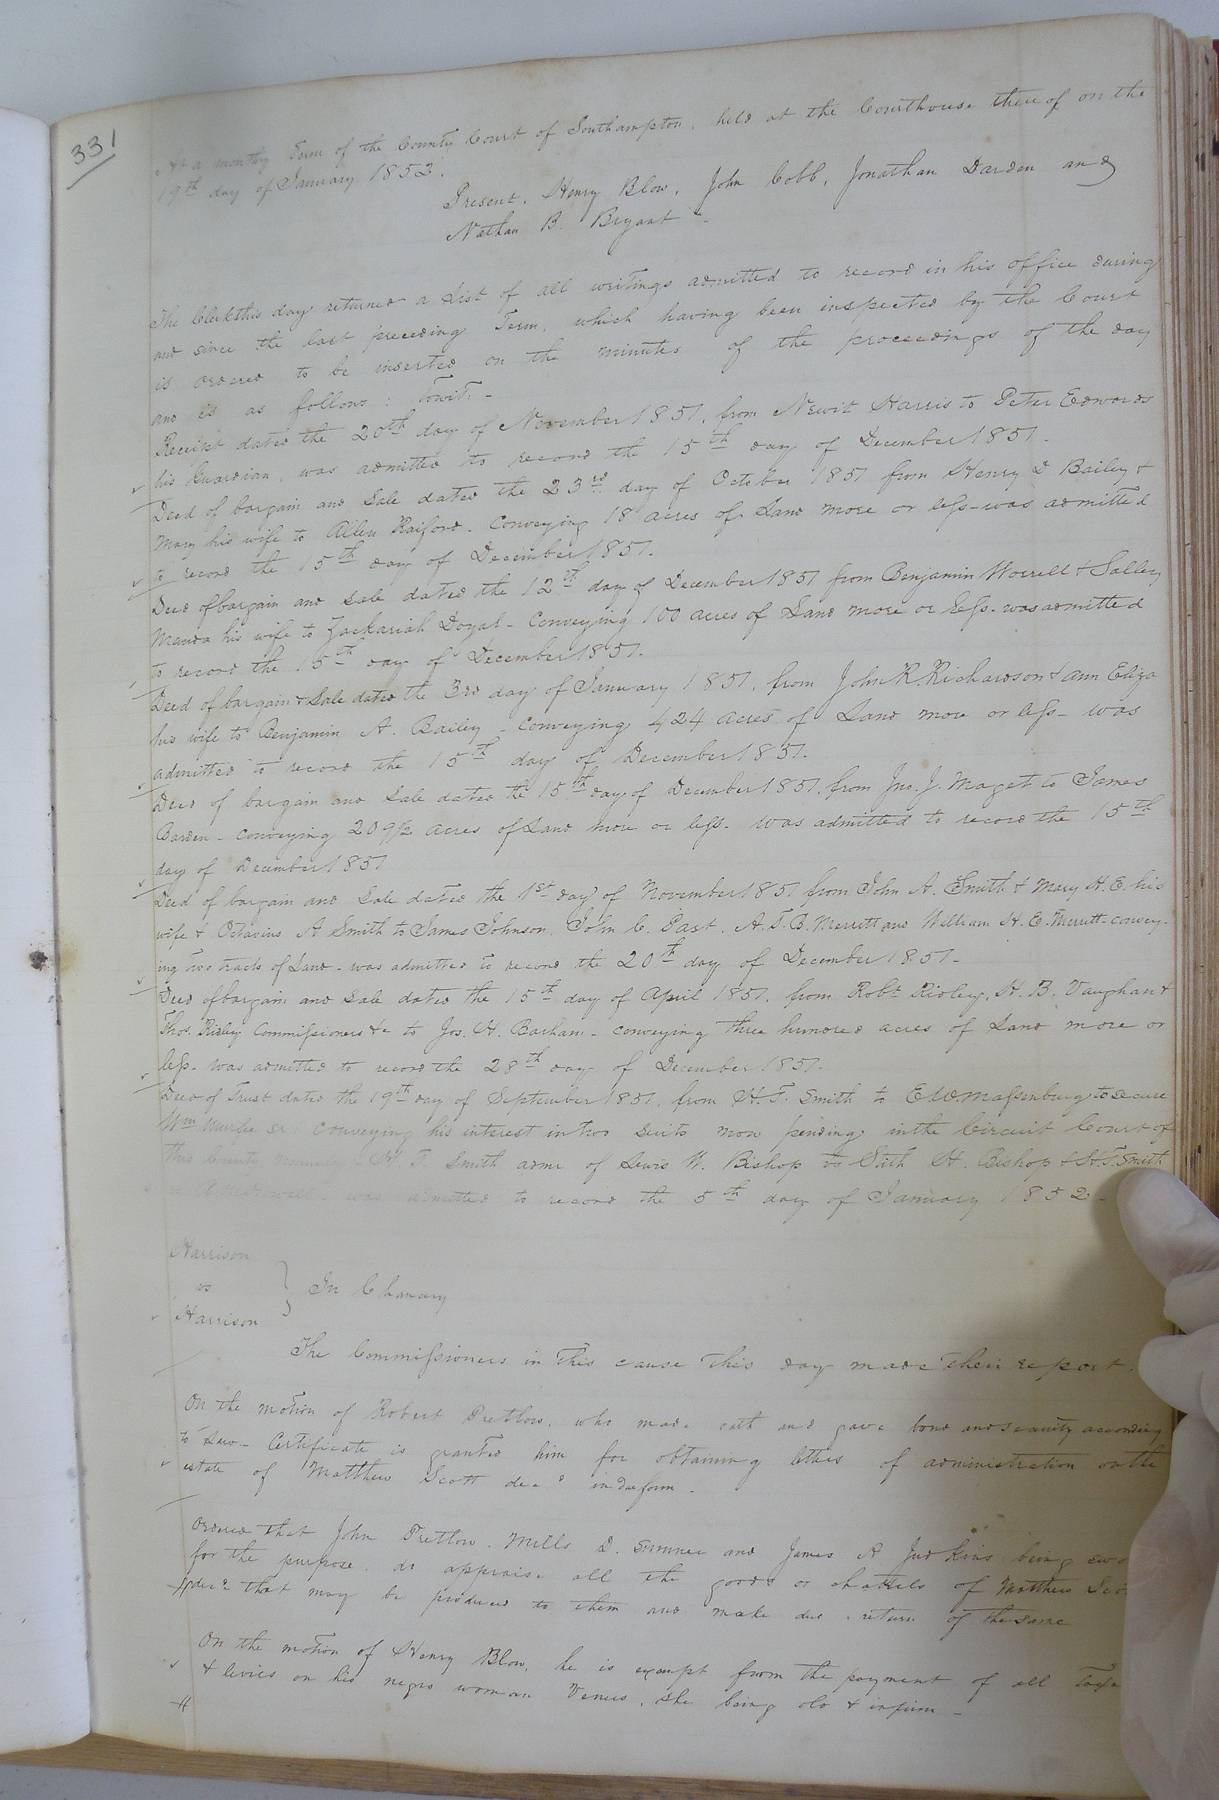 331
At a monthly Term of the County Court of Southampton, held at the Courthouse thereof on the
19th day of January 1852.
Present, Henry Blow, John Cobb, Jonathan Darden and
Nathan B. Bryant -
The Clerk this day returned a List of all writings admitted to record in his office during
and since the last preceding Term, which having been inspected by the Court
is ordered to be inserted on the minutes of the proceedings of the day
and is as follows: Towit: -
Receipt dated the 20th day of November 1851, from Newit Harris to Peter Edwards
his Guardian was admitted to record the 15th day of December 1851.
Deed of bargain and Sale dated the 23rd day of October 1851 from Henry D Bailey &
Mary his wife to Allen Raiford. Conveying 18 acres of Land more or less - was admitted
to record the 15th day of December 1851.
Deed of bargain and Sale dated the 12th day of December 1851 from Benjamin Worrell & Salley
his wife to Zackariah Doyal - Conveying 100 acres of Land more or less - was admitted
to record the 15th day of December 1851.
Deed of bargain & Sale dated the 3rd day of January 1851, from John R. Richardson & Ann Eliza
his wife to Benjamin A. Bailey - Conveying 424 acres of Land more or less - was
admitted to record the 15th day of December 1851.
Deed of bargain and Sale dated the 15th day of December 1851, from Jno. J. Maget to James
Barden - conveying 209 1/2 acres of Land more or less - was admitted to record the 15th
day of December 1851
Deed of bargain and Sale dated the 1st day of November 1851 from John A. Smith & Mary H. E. his
wife & Octavius A Smith to James Johnson, John C. Past, A. T. B. Merritt and William H. E. Merritt - convey-
ing two tracts of Land - was admitted to record the 20th day of December 1851 -
Deed of bargain and Sale dated the 15th day of April 1851, from Robt Ridley, H. B. Vaughan &
Thos. Ridley Commissioners &c to Jos. H. Barham - conveying three hundred acres of Land more or
less - was admitted to record the 28th day of December 1851.
Deed of Trust dated the 19th day of September 1851, from H. T. Smith to E W. Massenburg to secure
Wm Murfee Sr. Conveying his interest in two Suits now pending in the Circuit Court of
this County namely H T Smith admr of Lewis W. Bishop vs Stith H. Bishop & H. T. Smith
was admitted to record the 5th day of January 1852 -
Harrison
vs } In Chancery
Harrison
The Commissioners in this cause this day made their report.
On the motion of Robert Pretlow, who made oath and gave bond and security according
to Law - Certificate is granted him for obtaining letters of administration on the
estate of Matthew Scott decd in due form -
Ordered that John Pretlow, Mills D. Sumner and James A Judkins being swo
for the purpose do appraise all the goods or chattels of Matthew Sco
decd that may be produced to them and make due return of the same
On the motion of Henry Blow, he is exempt from the payment of all Taxe
& levies on his negro woman Venus, she being old & infirm -